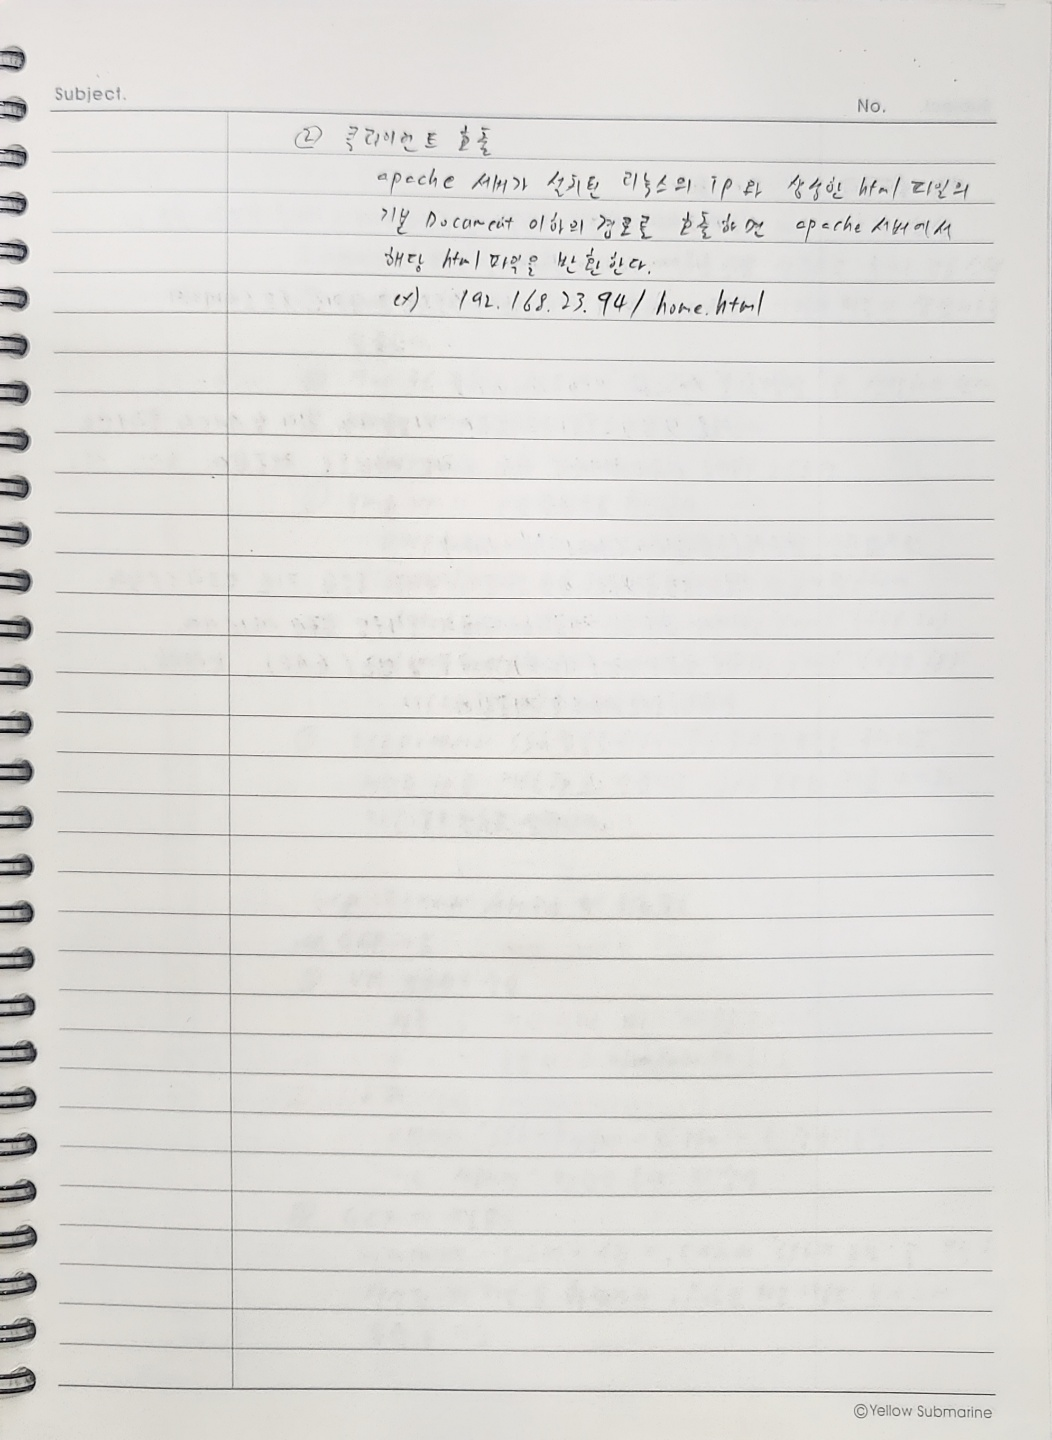 Subject.
No.
② 클라이언트 호출
apache 서버가 설치된 리눅스의 ip와 생성한 html 파일의
기본 Document 이하의 경로로 호출하면 apache 서버에서
해당 html 파일을 반환한다.
ex) 192.168.23.94/home.html
©Yellow Submarine